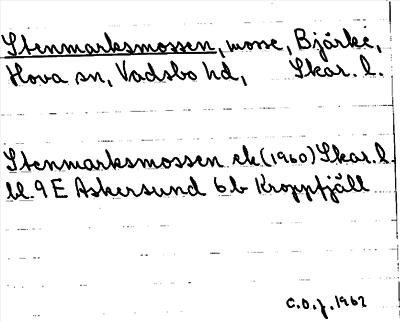 Stenmarksmossen, mosse, Bjärke,
Hova sn, Vadsbo hd, Skar. l.
Stenmarksmossen ek (1960) Skar. l.
bl. 9 E Askersund 6 b Kroppfjäll
C.O.f. 1962